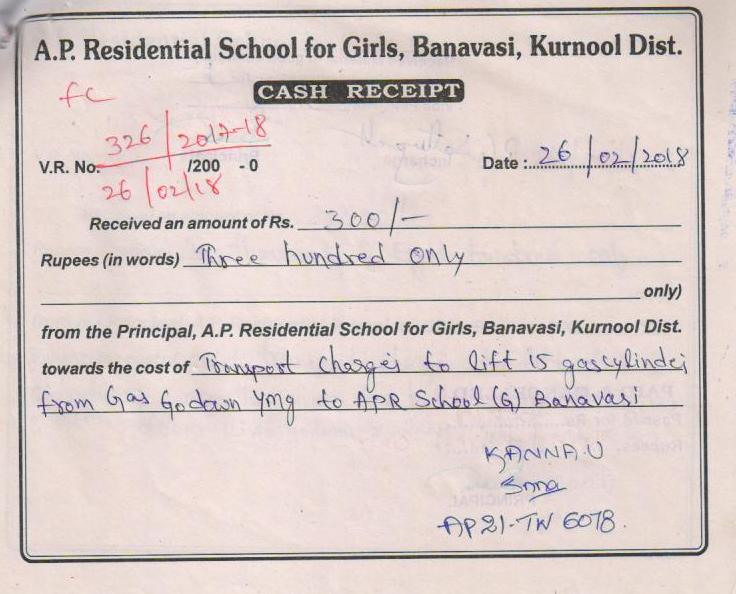 A.P. Residential School for Girls, Banavasi, Kurnool Dist.
fc
CASH RECEIPT
326 / 2017-18
V.R. No. /200 - 0
26/02/18
Date : 26/02/2018
Received an amount of Rs. 300/-
Rupees (in words) Three hundred only
only)
from the Principal, A.P. Residential School for Girls, Banavasi, Kurnool Dist.
towards the cost of Transport charges to lift 15 gas cylinder
from Gas Godown Ymg to APR School (G) Banavasi
KANNA.U
AP21-TW 6078.